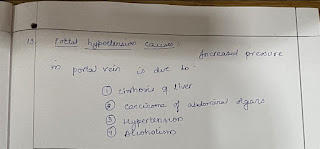 13. Portal hypertension causes:
Increased pressure
in portal vein is due to:
① Cirrhosis of liver
② Carcinoma of abdominal organs
③ Hypertension
④ Alcoholism